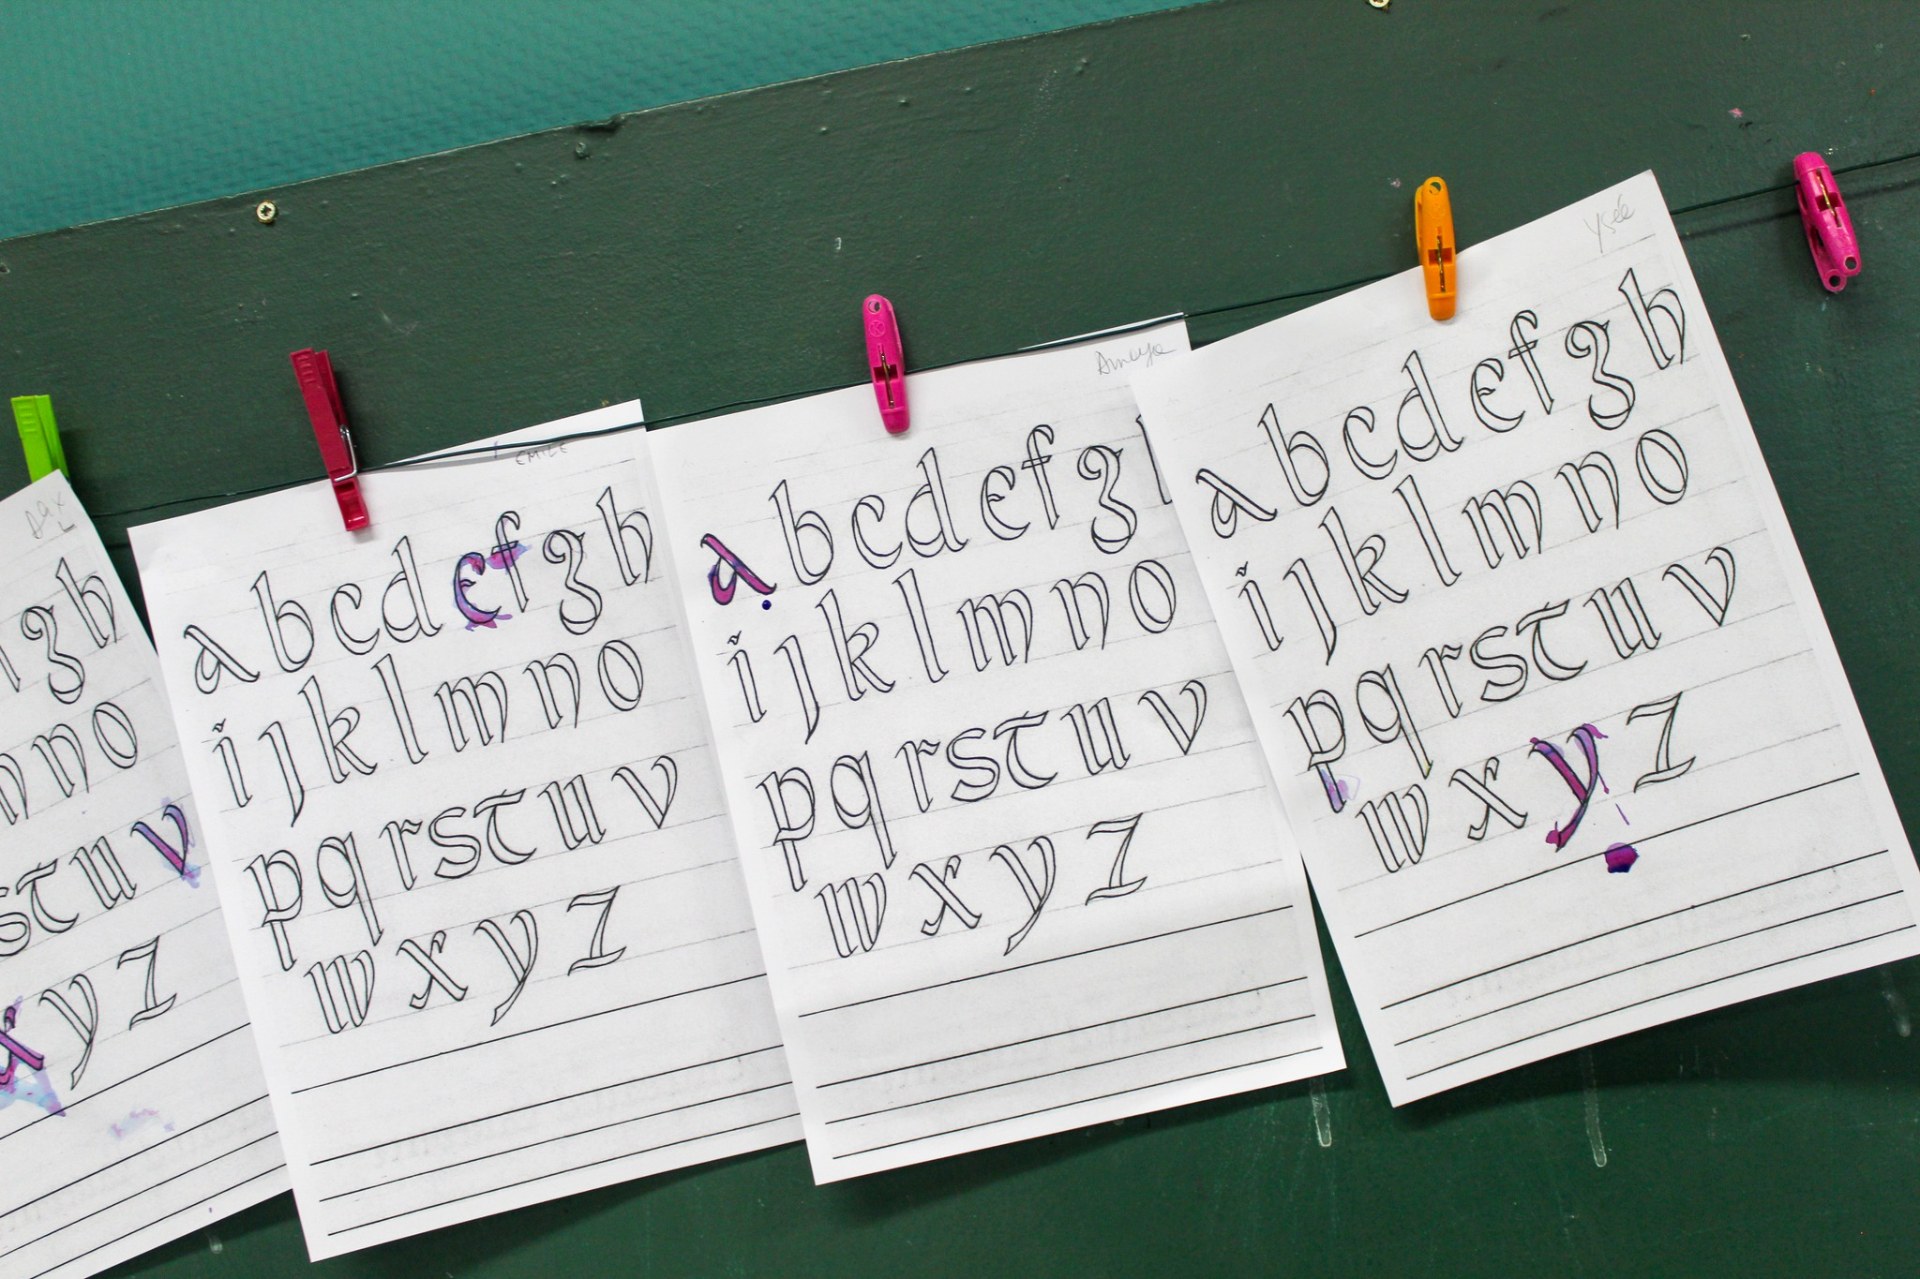 Dax
g h
n o
s t u v
x y z
EMILE
a b c d e f g h
i j k l m n o
p q r s t u v
w x y z
Amaya
a b c d e f g
i j k l m n o
p q r s t u v
w x y z
Ysée
a b c d e f g h
i j k l m n o
p q r s t u v
w x y z